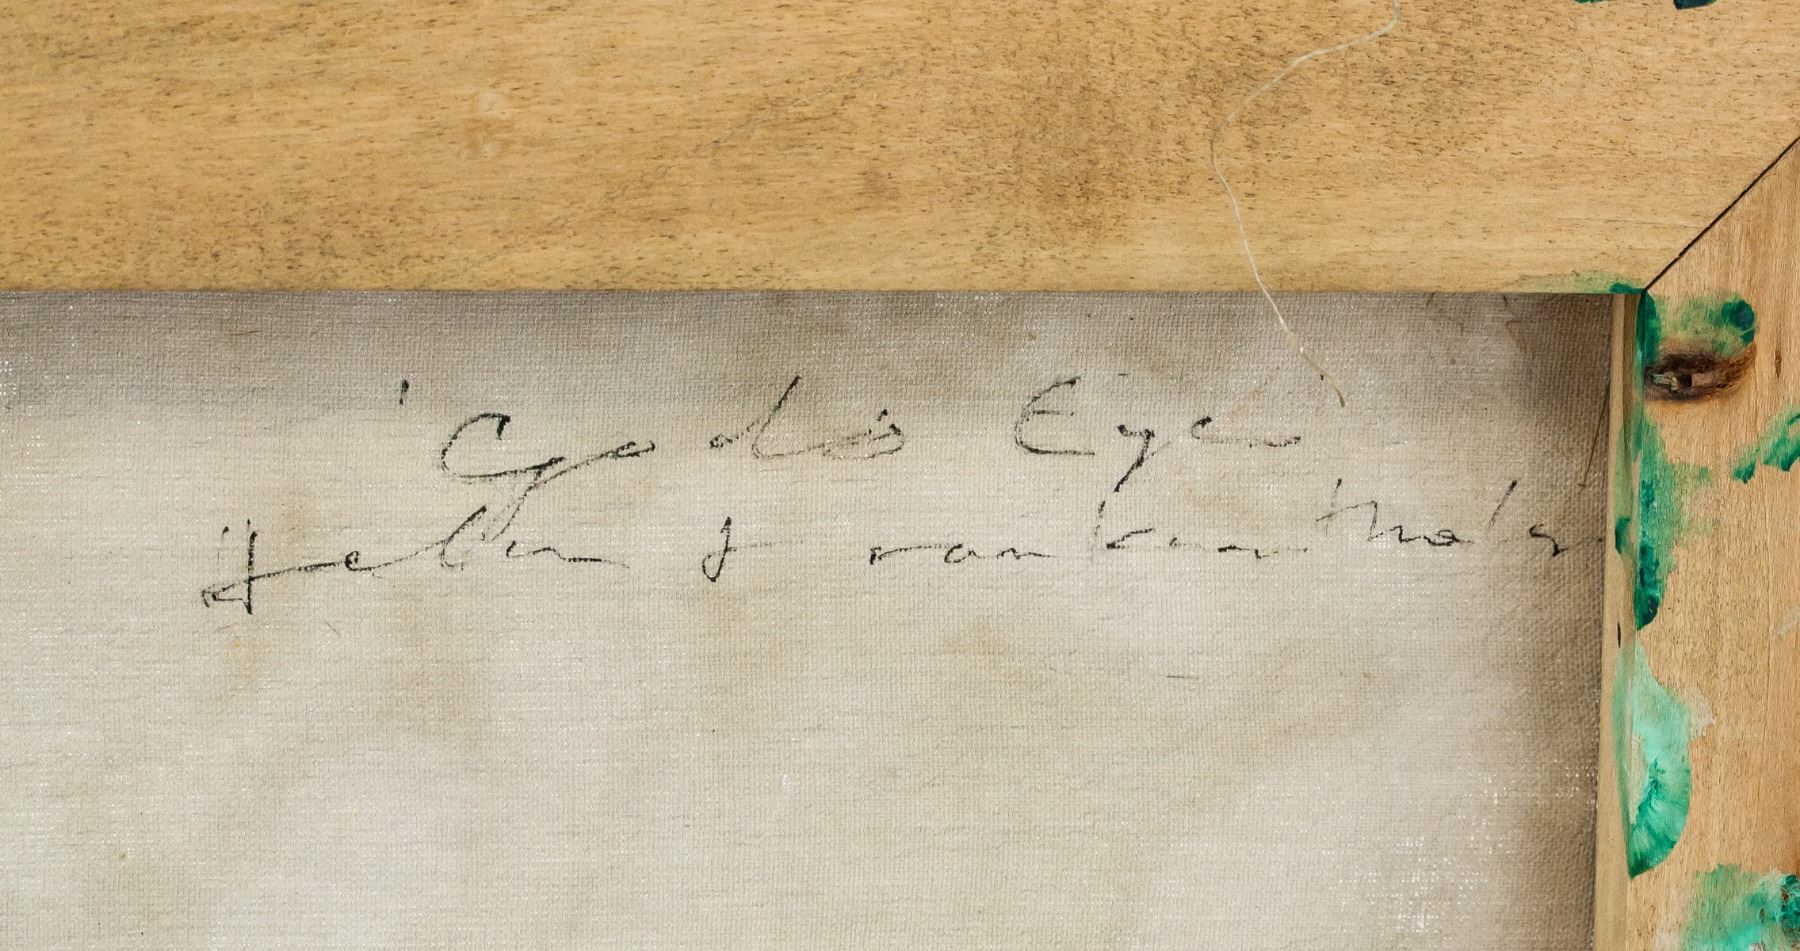 'Cyclo's Eye'
Helen Frankenthaler